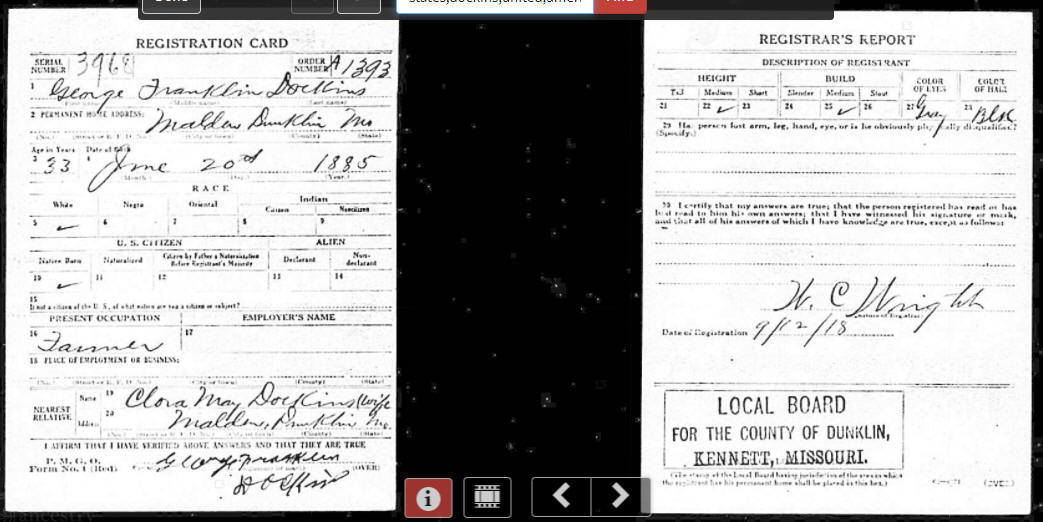 Done
states,dockins,united,amer
Find
REGISTRATION CARD
SERIAL NUMBER 3968
ORDER NUMBER A1393
1 George Franklin Dockins
2 PERMANENT HOME ADDRESS:
Malden Dunklin Mo
(No.) (City or town) (County) (State)
Age in Years Date of Birth
3 33 4 June 20th 1885
(Month.) (Day.) (Year.)
RACE
White Negro Oriental Indian
Citizen Noncitizen
5 ✓ 6 7 8 9
U. S. CITIZEN ALIEN
Native Born Naturalized Citizen by Father's Naturalization Before Registrant's Majority Declarant Non-declarant
10 ✓ 11 12 13 14
15
If not a citizen of the U. S., of what nation are you a citizen or subject?
PRESENT OCCUPATION EMPLOYER'S NAME
16 Farmer 17
18 PLACE OF EMPLOYMENT OR BUSINESS:
(No.) (Street or R. F. D. No.) (City or town) (County) (State)
NEAREST RELATIVE
Name 19 Clora May Dockins (wife
Address 20 Malden, Dunklin Mo.
(No.) (Street or R. F. D. No.) (City or town) (County) (State)
I AFFIRM THAT I HAVE VERIFIED ABOVE ANSWERS AND THAT THEY ARE TRUE
P. M. G. O.
Form No. 1 (Red)
George Franklin
(OVER)
Dockins
REGISTRAR'S REPORT
DESCRIPTION OF REGISTRANT
HEIGHT BUILD COLOR OF EYES COLOR OF HAIR
Tall Medium Short Slender Medium Stout
21 22 ✓ 23 24 25 ✓ 26 27 Gray 28 Blk
29 Has person lost arm, leg, hand, eye, or is he obviously physically disqualified?
(Specify.)
30 I certify that my answers are true; that the person registered has read or has
had read to him his own answers; that I have witnessed his signature or mark,
and that all of his answers of which I have knowledge are true, except as follows:
W. C Wright
Date of Registration 9/12/18
LOCAL BOARD
FOR THE COUNTY OF DUNKLIN,
KENNETT, MISSOURI.
(The stamp of the Local Board having jurisdiction of the area in which
the registrant has his permanent home shall be placed in this box.)
(OVER)
ancestry